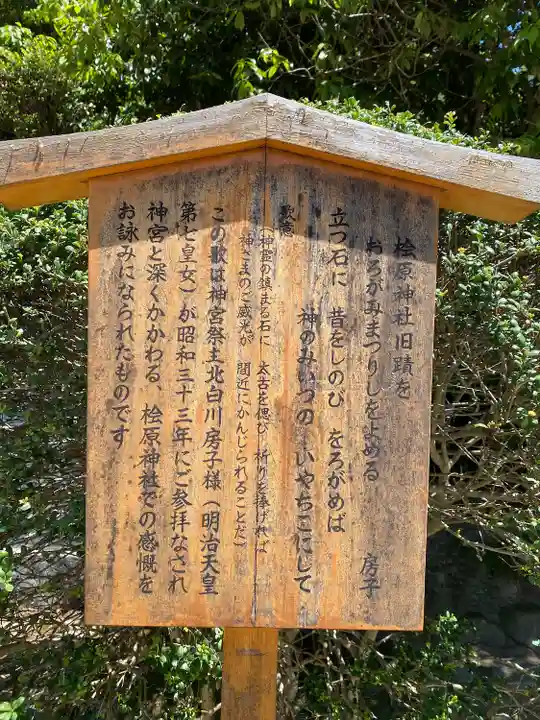 桧原神社旧蹟を
おろがみまつりしをよめる 房子
立つ石に 昔をしのび をろがめば
神のみいつの いやちこにして
歌意
(神霊の鎮まる石に 太古を偲び 祈りを捧げれば
神さまのご威光が 間近にかんじられることだ)
この歌は神宮祭主北白川房子様(明治天皇
第七皇女)が昭和三十三年にご参拝なされ
神宮と深くかかわる、桧原神社での感慨を
お詠みになられたものです